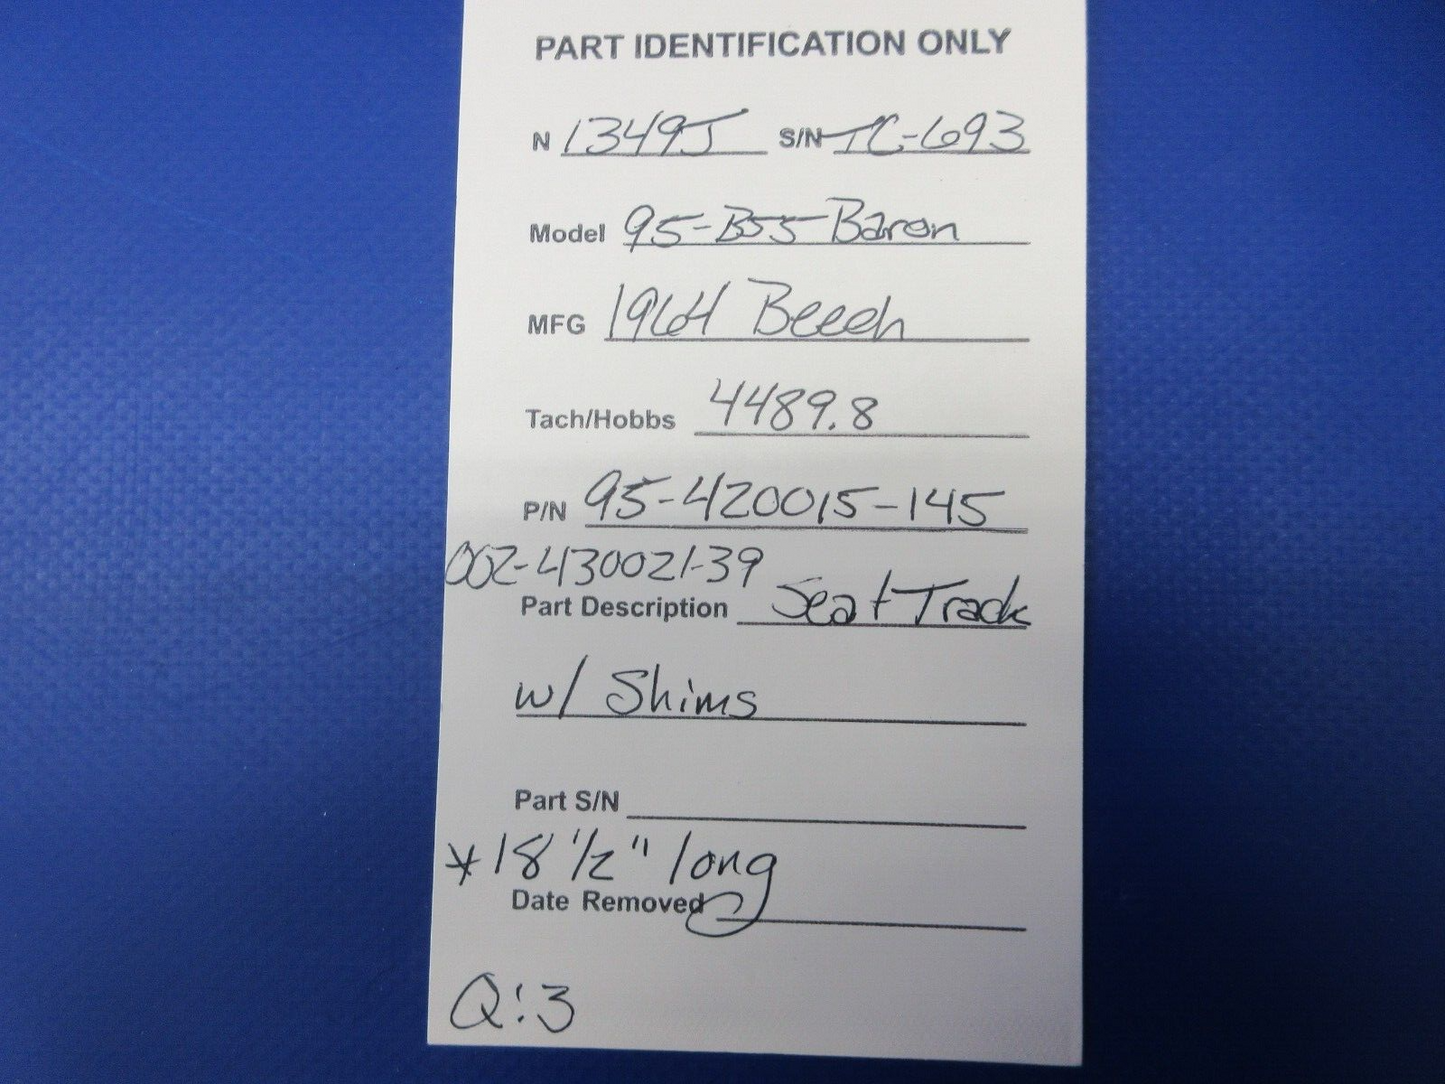 PART IDENTIFICATION ONLY
N 1349J S/N TC-693
Model 95-B55 Baron
MFG 1964 Beech
Tach/Hobbs 4489.8
P/N 95-420015-145
002-430021-39
Part Description Seat Track
w/ Shims
Part S/N
*18 1/2" long
Date Removed
Q:3